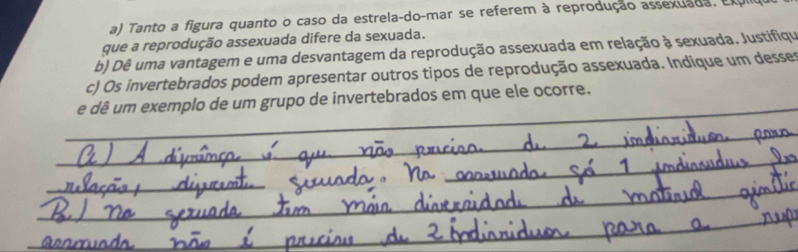 a) Tanto a figura quanto o caso da estrela-do-mar se referem à reprodução assexuada. Expliqu
que a reprodução assexuada difere da sexuada.
b) Dê uma vantagem e uma desvantagem da reprodução assexuada em relação à sexuada. Justifiqu
c) Os invertebrados podem apresentar outros tipos de reprodução assexuada. Indique um desses
e dê um exemplo de um grupo de invertebrados em que ele ocorre.
a) A diferença é que não precisa de 2 indivíduos para
relação, diferente sexuada. Na assexuada só 1 indivíduo
B.) na sexuada tem mais diversidade de material genétic
assexuada não é preciso de 2 indivíduos para a